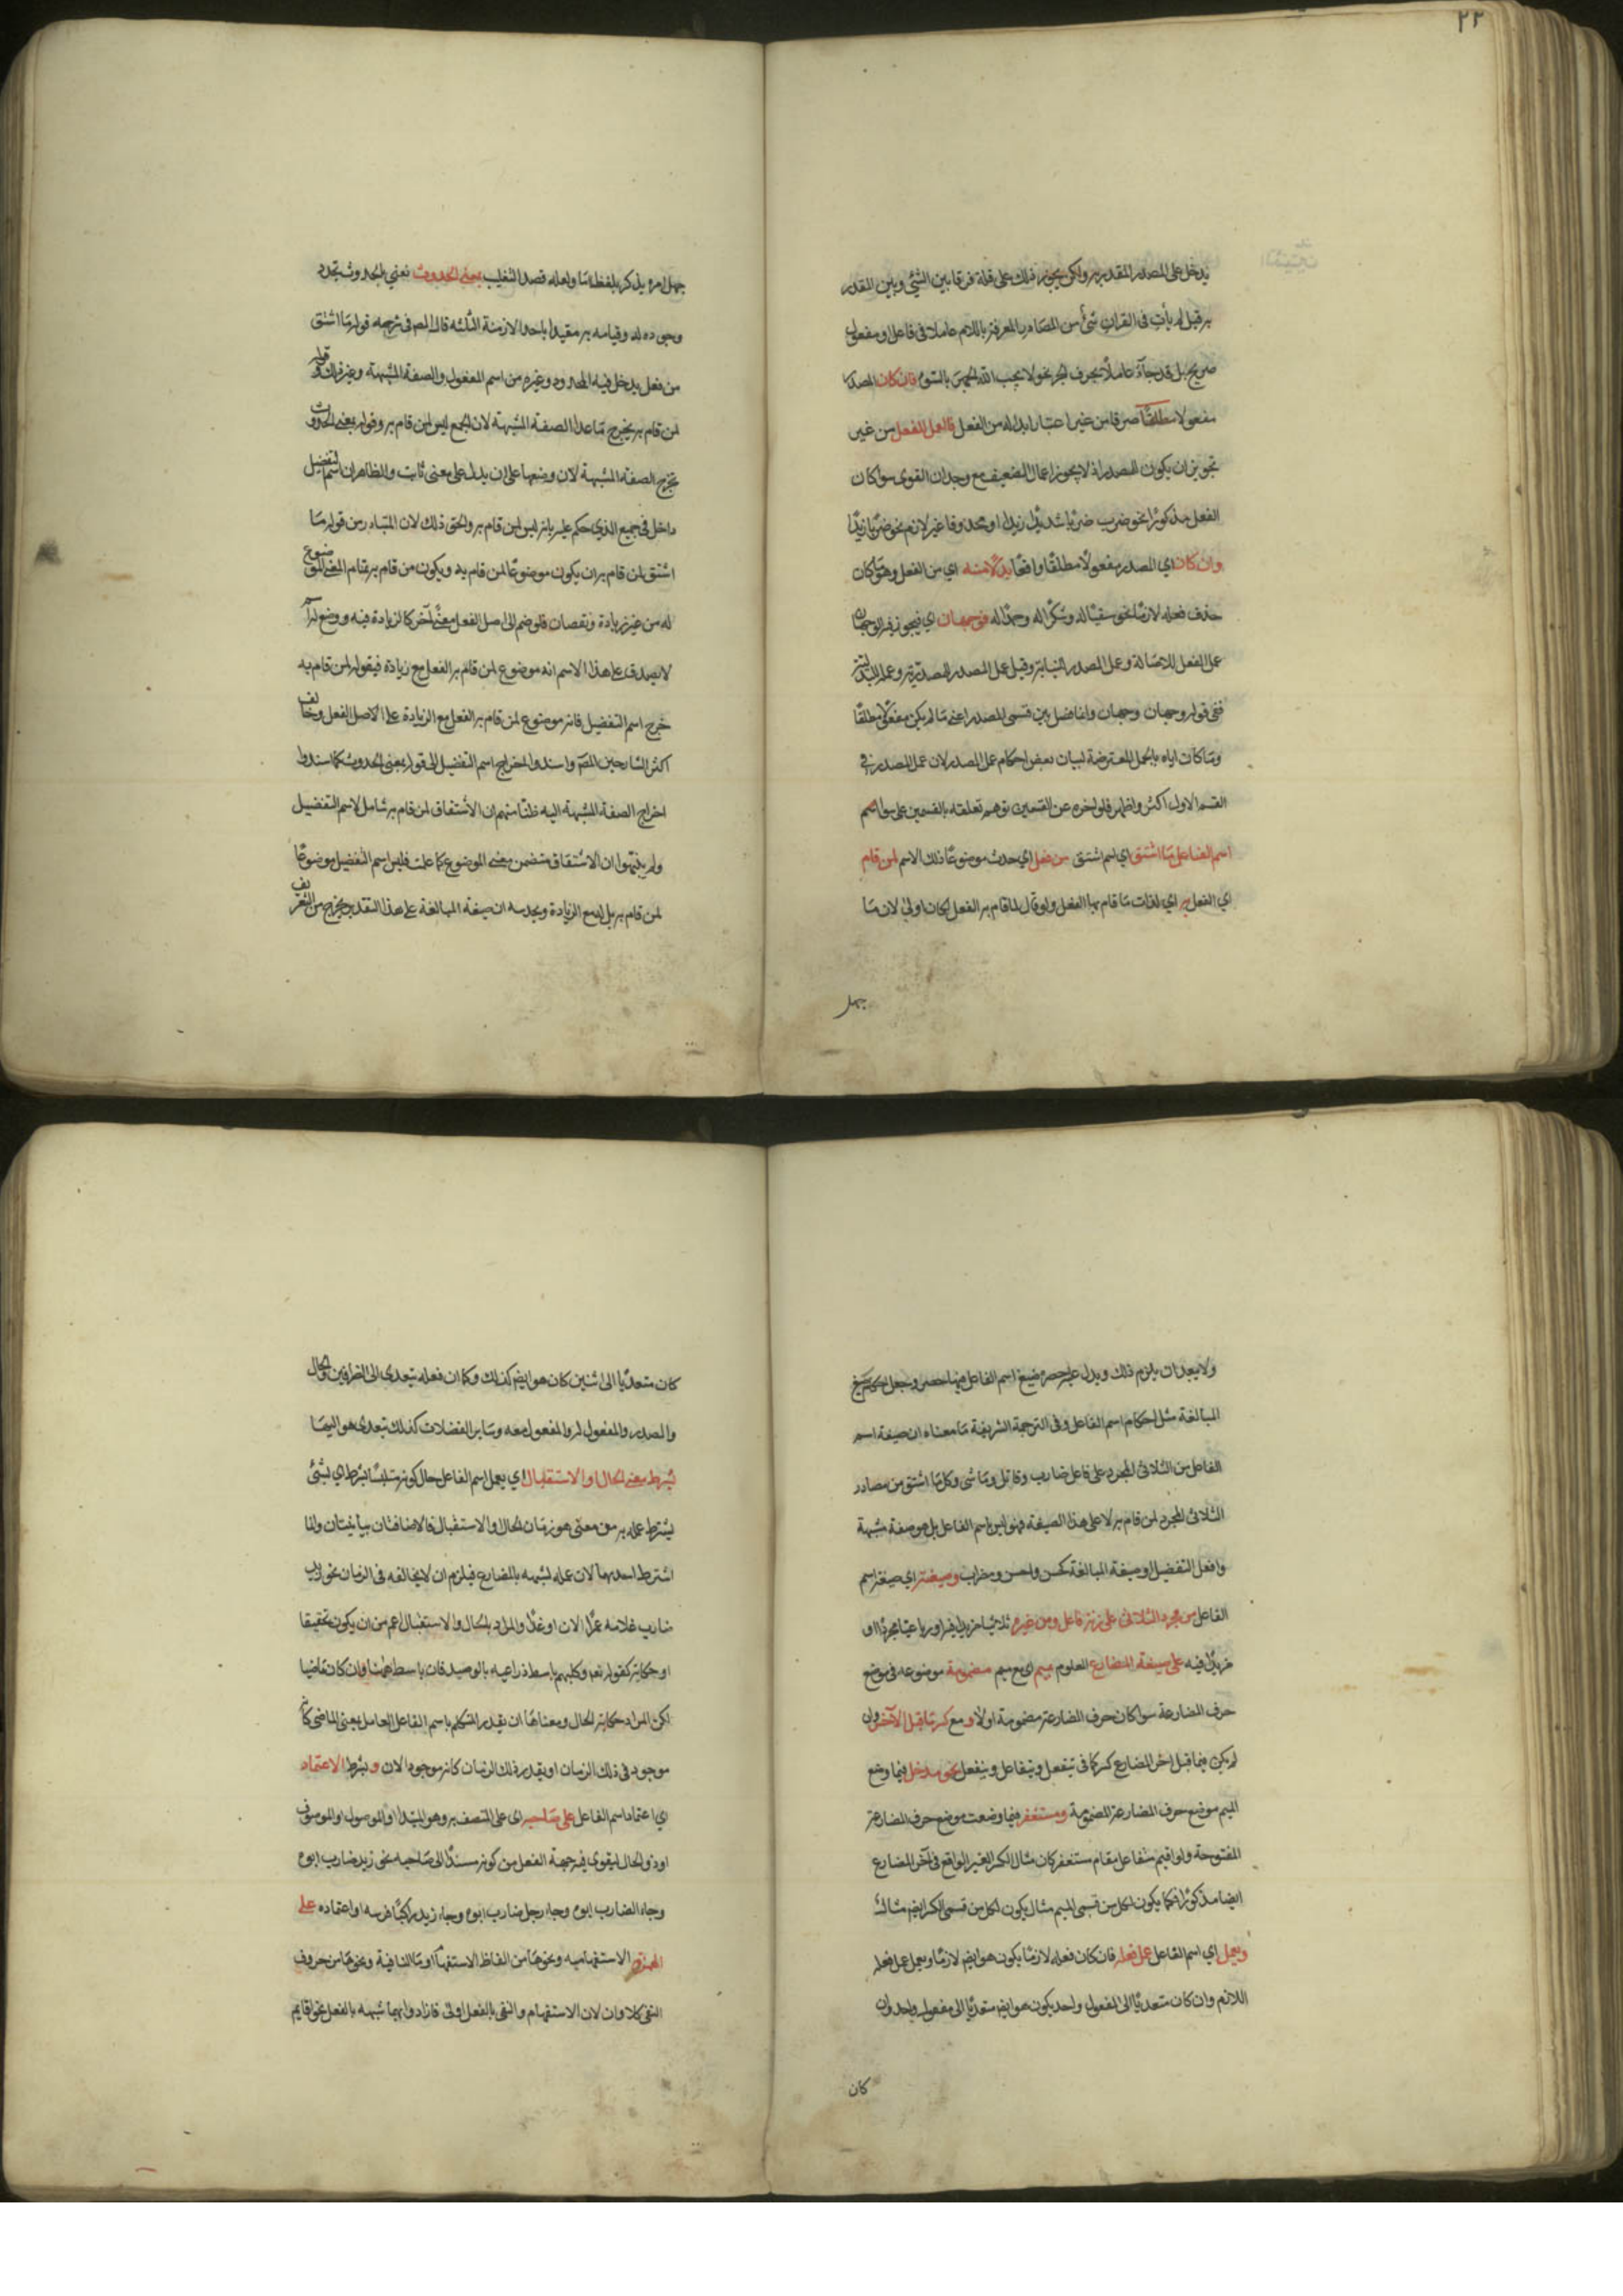 ٢٢
يدخل على المصدر المقدر به ولكن يجوز ذلك على قلة فرقا بين الشئ وبين المقدر
به قيل لم يأت في القرآن شئ من المصادر المعرفة باللام عاملا في فاعل او مفعول
صريح بل قد جآء عاملا بحرف الجر نحو لا يحب الله الجهر بالسوء فان كان المصدر
مفعولا مطلقا صرفا من غير اعتبار ابداله من الفعل فالعمل للفعل من غير
تجويز ان يكون للمصدر اذ لا يجوز اعمال الضعيف مع وجدان القوى سوا كان
الفعل مذكورا نحو ضربت ضربا شديدا زيدا او محذوفا غير لازم نحو ضربا زيدا
وان كان اي المصدر مفعولا مطلقا واقعا بدلا منه اي من الفعل وهو ما كان
حذف فعله لازما نحو سقيا له وشكرا له وحمدا له فوجهان اي فيجوز فيه الوجهان
عمل الفعل للاصالة وعمل المصدر للنيابة وقيل عمل المصدر للمصدرية وعمله للبدلية
ففي قوله وجهان وجهان وانما فصل بين قسمي المصدر اعني ما لم يكن مفعولا مطلقا
وما كان اياه بالجمل المعترضة لبيان بعض احكام عمل المصدر لان عمل المصدر في
القسم الاول اكثر واظهر فلو اخره عن القسمين توهم تعلقه بالقسمين على سوا
اسم الفاعل ما اشتق اي اسم اشتق من فعل اي حدث موضوعا ذلك الاسم لمن قام
اي الفعل به اي لذات ما قام بها الفعل ولو قال لما قام به الفعل لكان اولى لان ما
جهل
جهل امره يذكر بلفظ ما ولعله قصد التغليب بمعنى الحدوث نعني بالحدوث تجدد
وجوده له وقيامه به مقيدا باحد الازمنة الثلثة قال المص في شرحه قوله ما اشتق
من فعل يدخل فيه المحدود وغيره من اسم المفعول والصفة المشبهة وغير ذلك وقوله
لمن قام به يخرج ما عدا الصفة المشبهة لان الجميع ليس لمن قام به وقوله بمعنى الحدوث
تخرج الصفة المشبهة لان وضعها على ان يدل على معنى ثابت والظاهر ان اسم التفضيل
داخل في جميع الذي حكم عليه بانه ليس لمن قام به والحق ذلك لان المتبادر من قوله ما
اشتق لمن قام به ان يكون موضوعا لمن قام به ويكون من قام به تمام المعنى الموضوع
له من غير زيادة ونقصان فلو ضم الى اصل الفعل معنى آخر كالزيادة فيه ووضع له اسم
لا يصدق على هذا الاسم انه موضوع لمن قام به الفعل مع زيادة فبقوله لمن قام به
خرج اسم التفضيل فانه موضوع لمن قام به الفعل مع الزيادة على الاصل الفعل وخالف
اكثر الشارحين المص واسندوا اخراج اسم التفضيل الى قوله بمعنى الحدوث كما اسندوا
اخراج الصفة المشبهة اليه ظنا منهم ان الاشتقاق لمن قام به شامل لاسم التفضيل
ولم يتنبهوا ان الاشتقاق متضمن معنى الموضوع كما علمت فليس اسم التفضيل موضوعا
لمن قام به بل له مع الزيادة ويخدشه ان صيغة المبالغة على هذا التقدير يخرج من التعريف
ولا يبعد ان يلزم ذلك ويدل عليه حصره صيغ اسم الفاعل فيما حصره وجعل حكم صيغ
المبالغة مثل احكام اسم الفاعل وفي الترجمة الشريفة ما معناه ان صيغة اسم
الفاعل من الثلاثي المجرد على فاعل ضارب وقاتل وماشى وكل ما اشتق من مصادر
الثلاثي المجرد لمن قام به لا على هذا الصيغة فهو ليس باسم الفاعل بل هو صفة مشبهة
وافعل التفضيل او صيغة المبالغة كحسن واحسن ومضراب وصيغته اي صيغة اسم
الفاعل من مجرد الثلاثي على زنة فاعل ومن غيره ثلاثيا مزيدا فيه او رباعيا مجردا او
مزيدا فيه على صيغة المضارع المعلوم بميم اي مع ميم مضمومة موضوعة في موضع
حرف المضارعة سوا كان حرف المضارعة مضمومة اولا ومع كسر ما قبل الآخر وان
لم يكن فيما قبل اخر المضارع كسر كما في يتفعل ويتفاعل ويتفعلل نحو مدخل فيما وضع
الميم موضع حرف المضارعة المضمومة ومستغفر فيما وضعت موضع حرف المضارعة
المفتوحة ولو اقيم متفاعل مقام مستغفر كان مثال الكسر الغير الواقع في آخر المضارع
ايضا مذكورا فكما يكون لكل من قسمي الميم مثال يكون لكل من قسمي الكسر ايضا مثال
ويعمل اي اسم الفاعل عمل فعله فان كان فعله لازما يكون هو ايضا لازما ويعمل عمل فعله
اللازم وان كان متعديا الى المفعول واحد يكون هو ايضا متعديا الى مفعول واحد وان
كان
كان متعديا الى اثنين كان هو ايضا كذلك وكما ان فعله يتعدى الى الظرفين والحال
والمصدر والمفعول له والمفعول معه وساير الفضلات كذلك يتعدى هو اليها
بشرط معنى الحال او الاستقبال اي يعمل اسم الفاعل حال كونه متلبسا بشرط اي بشئ
يشترط عمله به من معنى هو زمان الحال والاستقبال فالاضافتان بيانيتان وانما
اشترط احدهما لان عمله لشبهه بالمضارع فيلزم ان لا يخالفه في الزمان نحو زيد
ضارب غلامه عمرا الان او غدا والمراد بالحال والاستقبال اعم من ان يكون تحقيقا
او حكاية كقوله تعالى وكلبهم باسط ذراعيه بالوصيد فان باسط ههنا وان كان ماضيا
لكن المراد حكاية الحال ومعناها ان يقدر المتكلم باسم الفاعل العامل بمعنى الماضي كأنه
موجود في ذلك الزمان او يقدر ذلك الزمان كانه موجود الان وبشرط الاعتماد
اي اعتماد اسم الفاعل على صاحبه اي على المتصف به وهو المبتدا والموصول والموصوف
او ذو الحال ليقوى فيه جهة الفعل من كونه مسندا الى صاحبه نحو زيد ضارب ابوه
وجاء الضارب ابوه وجاء رجل ضارب ابوه وجاء زيد راكبا فرسه او اعتماده على
الهمزة الاستفهامية ونحوها من الفاظ الاستفهام او ما النافية ونحوها من حروف
النفي كلا وان لان الاستفهام والنفي بالفعل اولى فازداد بهما شبهه بالفعل نحو اقايم